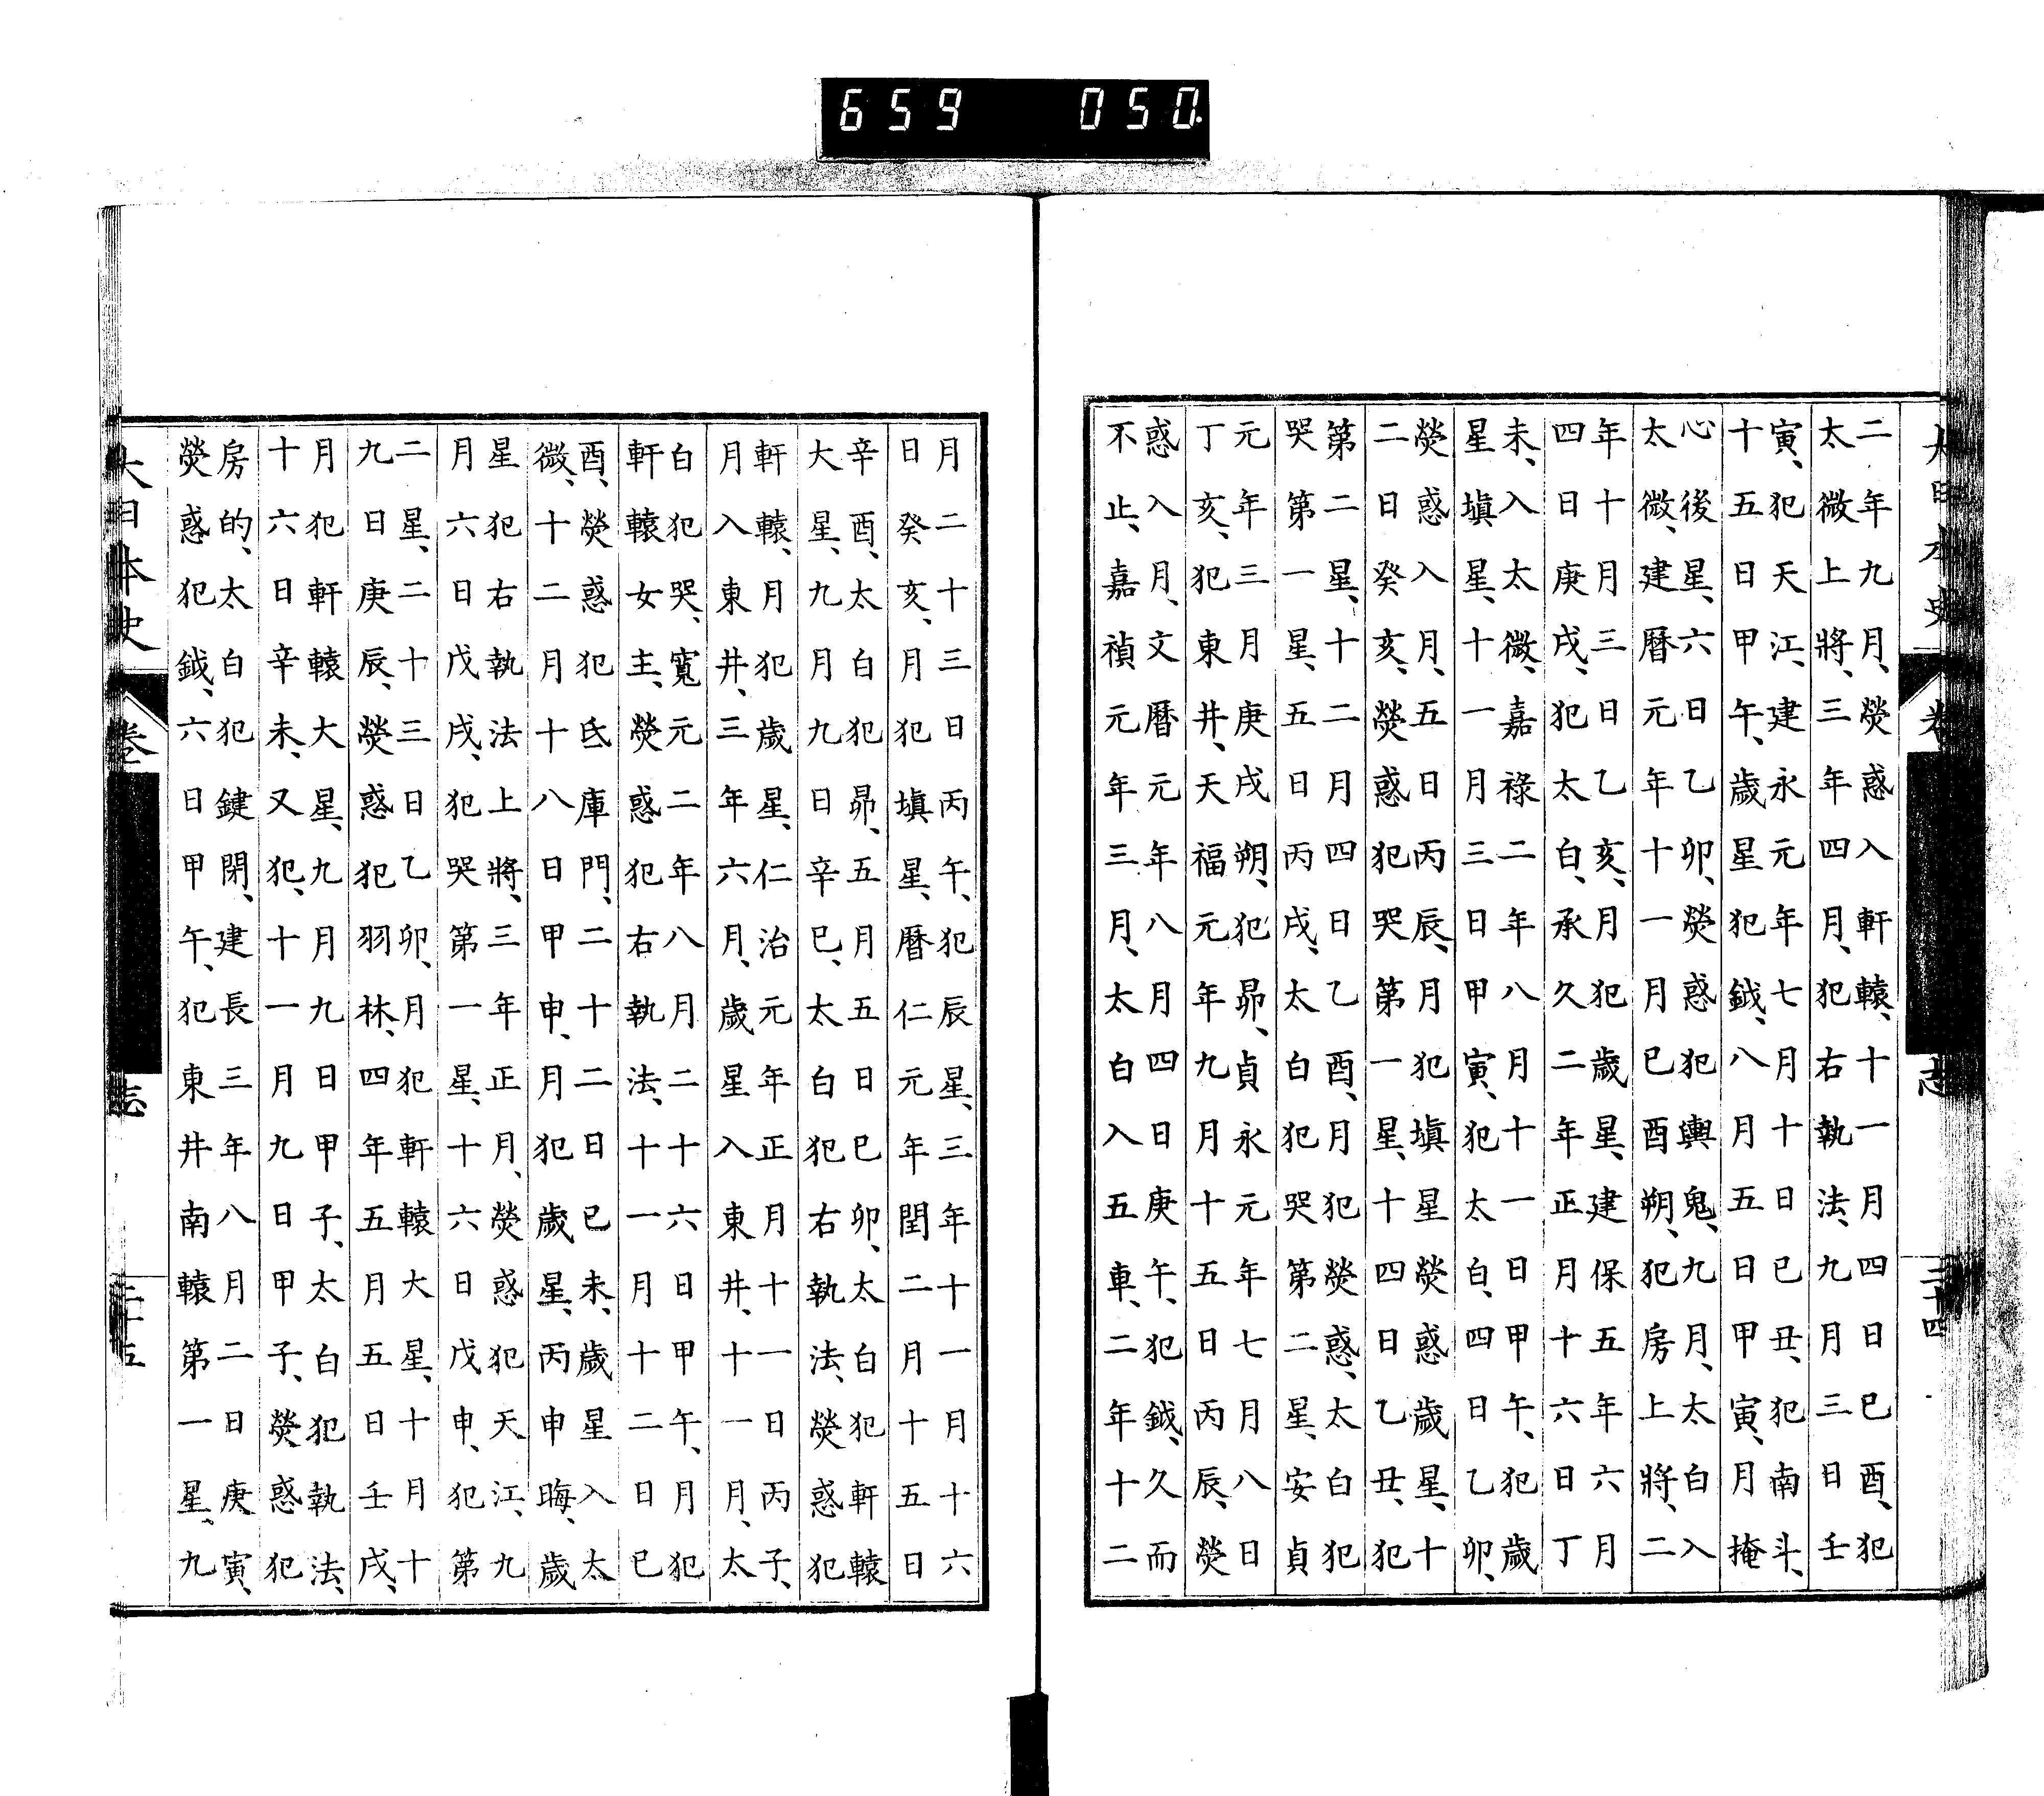 659 050
大日本史 卷 志 三十四
二年九月、熒惑入軒轅、十一月四日己酉、犯
太微上將、三年四月、犯右執法、九月三日壬
寅、犯天江、建永元年七月十日己丑、犯南斗、
十五日甲午、歲星犯鉞、八月五日甲寅、月掩
心後星、六日乙卯、熒惑犯輿鬼、九月、太白入
太微、建曆元年十一月己酉朔、犯房上將、二
年十月三日乙亥、月犯歲星、建保五年六月
四日庚戌、犯太白、承久二年正月十六日丁
未、入太微、嘉祿二年八月十一日甲午、犯歲
星填星、十一月三日甲寅、犯太白、四日乙卯、
熒惑入月、五日丙辰、月犯填星熒惑歲星、十
二日癸亥、熒惑犯哭第一星、十四日乙丑、犯
第二星、十二月四日乙酉、月犯熒惑、太白犯
哭第一星、五日丙戌、太白犯哭第二星、安貞
元年三月庚戌朔、犯昴、貞永元年七月八日
丁亥、犯東井、天福元年九月十五日丙辰、熒
惑入月、文曆元年八月四日庚午、犯鉞、久而
不止、嘉禎元年三月、太白入五車、二年十二
月二十三日丙午、犯辰星、三年十一月十六
日癸亥、月犯填星、曆仁元年閏二月十五日
辛酉、太白犯昴、五月五日己卯、太白犯軒轅
大星、九月九日辛巳、太白犯右執法、熒惑犯
軒轅、月犯歲星、仁治元年正月十一日丙子、
月入東井、三年六月、歲星入東井、十一月、太
白犯哭、寬元二年八月二十六日甲午、月犯
軒轅女主、熒惑犯右執法、十一月十二日己
酉、熒惑犯氐庫門、二十二日己未、歲星入太
微、十二月十八日甲申、月犯歲星、丙申晦、歲
星犯右執法上將、三年正月、熒惑犯天江、九
月六日戊戌、犯哭第一星、十六日戊申、犯第
二星、二十三日乙卯、月犯軒轅大星、十月十
九日庚辰、熒惑犯羽林、四年五月五日壬戌、
月犯軒轅大星、九月九日甲子、太白犯執法、
十六日辛未、又犯、十一月九日甲子、熒惑犯
房的、太白犯鍵閉、建長三年八月二日庚寅、
熒惑犯鉞、六日甲午、犯東井南轅第一星、九
大日本史 卷 志 三十五